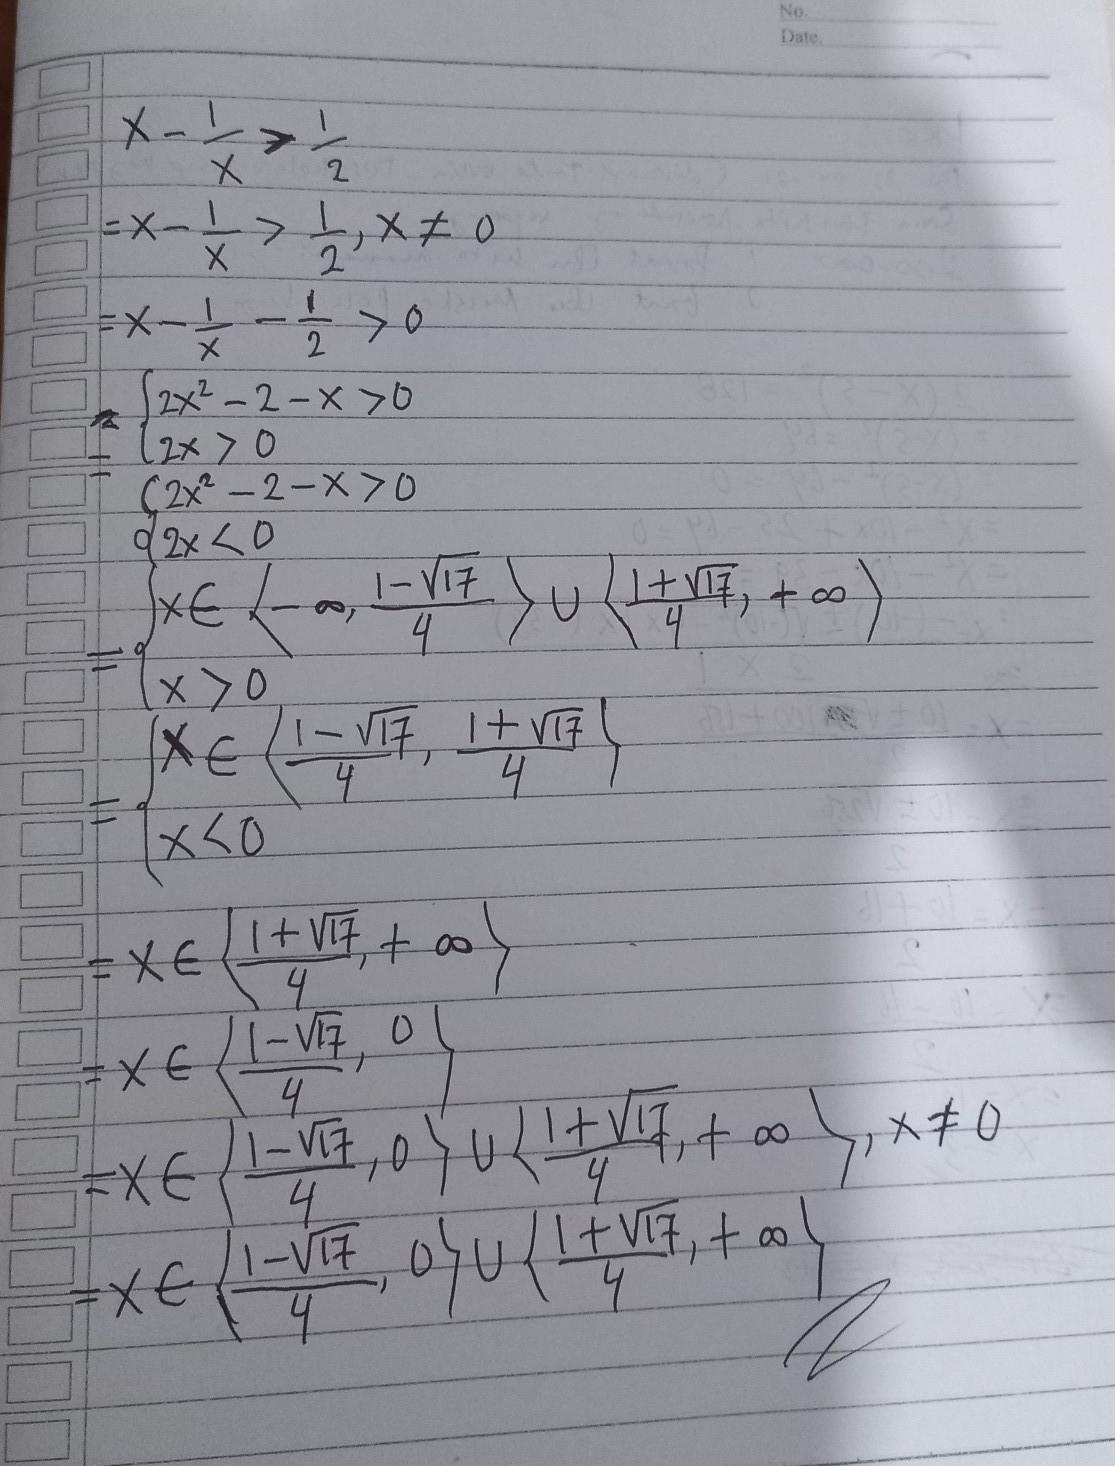 No.
Date.
x - 1/x > 1/2
= x - 1/x > 1/2, x ≠ 0
= x - 1/x - 1/2 > 0
= { 2x² - 2 - x > 0
{ 2x > 0
= { 2x² - 2 - x > 0
{ 2x < 0
= { x ∈ ⟨-∞, (1-√17)/4⟩ ∪ ⟨(1+√17)/4, +∞⟩
{ x > 0
= { x ∈ ⟨(1-√17)/4, (1+√17)/4⟩
{ x < 0
= x ∈ ⟨(1+√17)/4, +∞⟩
= x ∈ ⟨(1-√17)/4, 0⟩
= x ∈ ⟨(1-√17)/4, 0⟩ ∪ ⟨(1+√17)/4, +∞⟩, x ≠ 0
= x ∈ ⟨(1-√17)/4, 0⟩ ∪ ⟨(1+√17)/4, +∞⟩